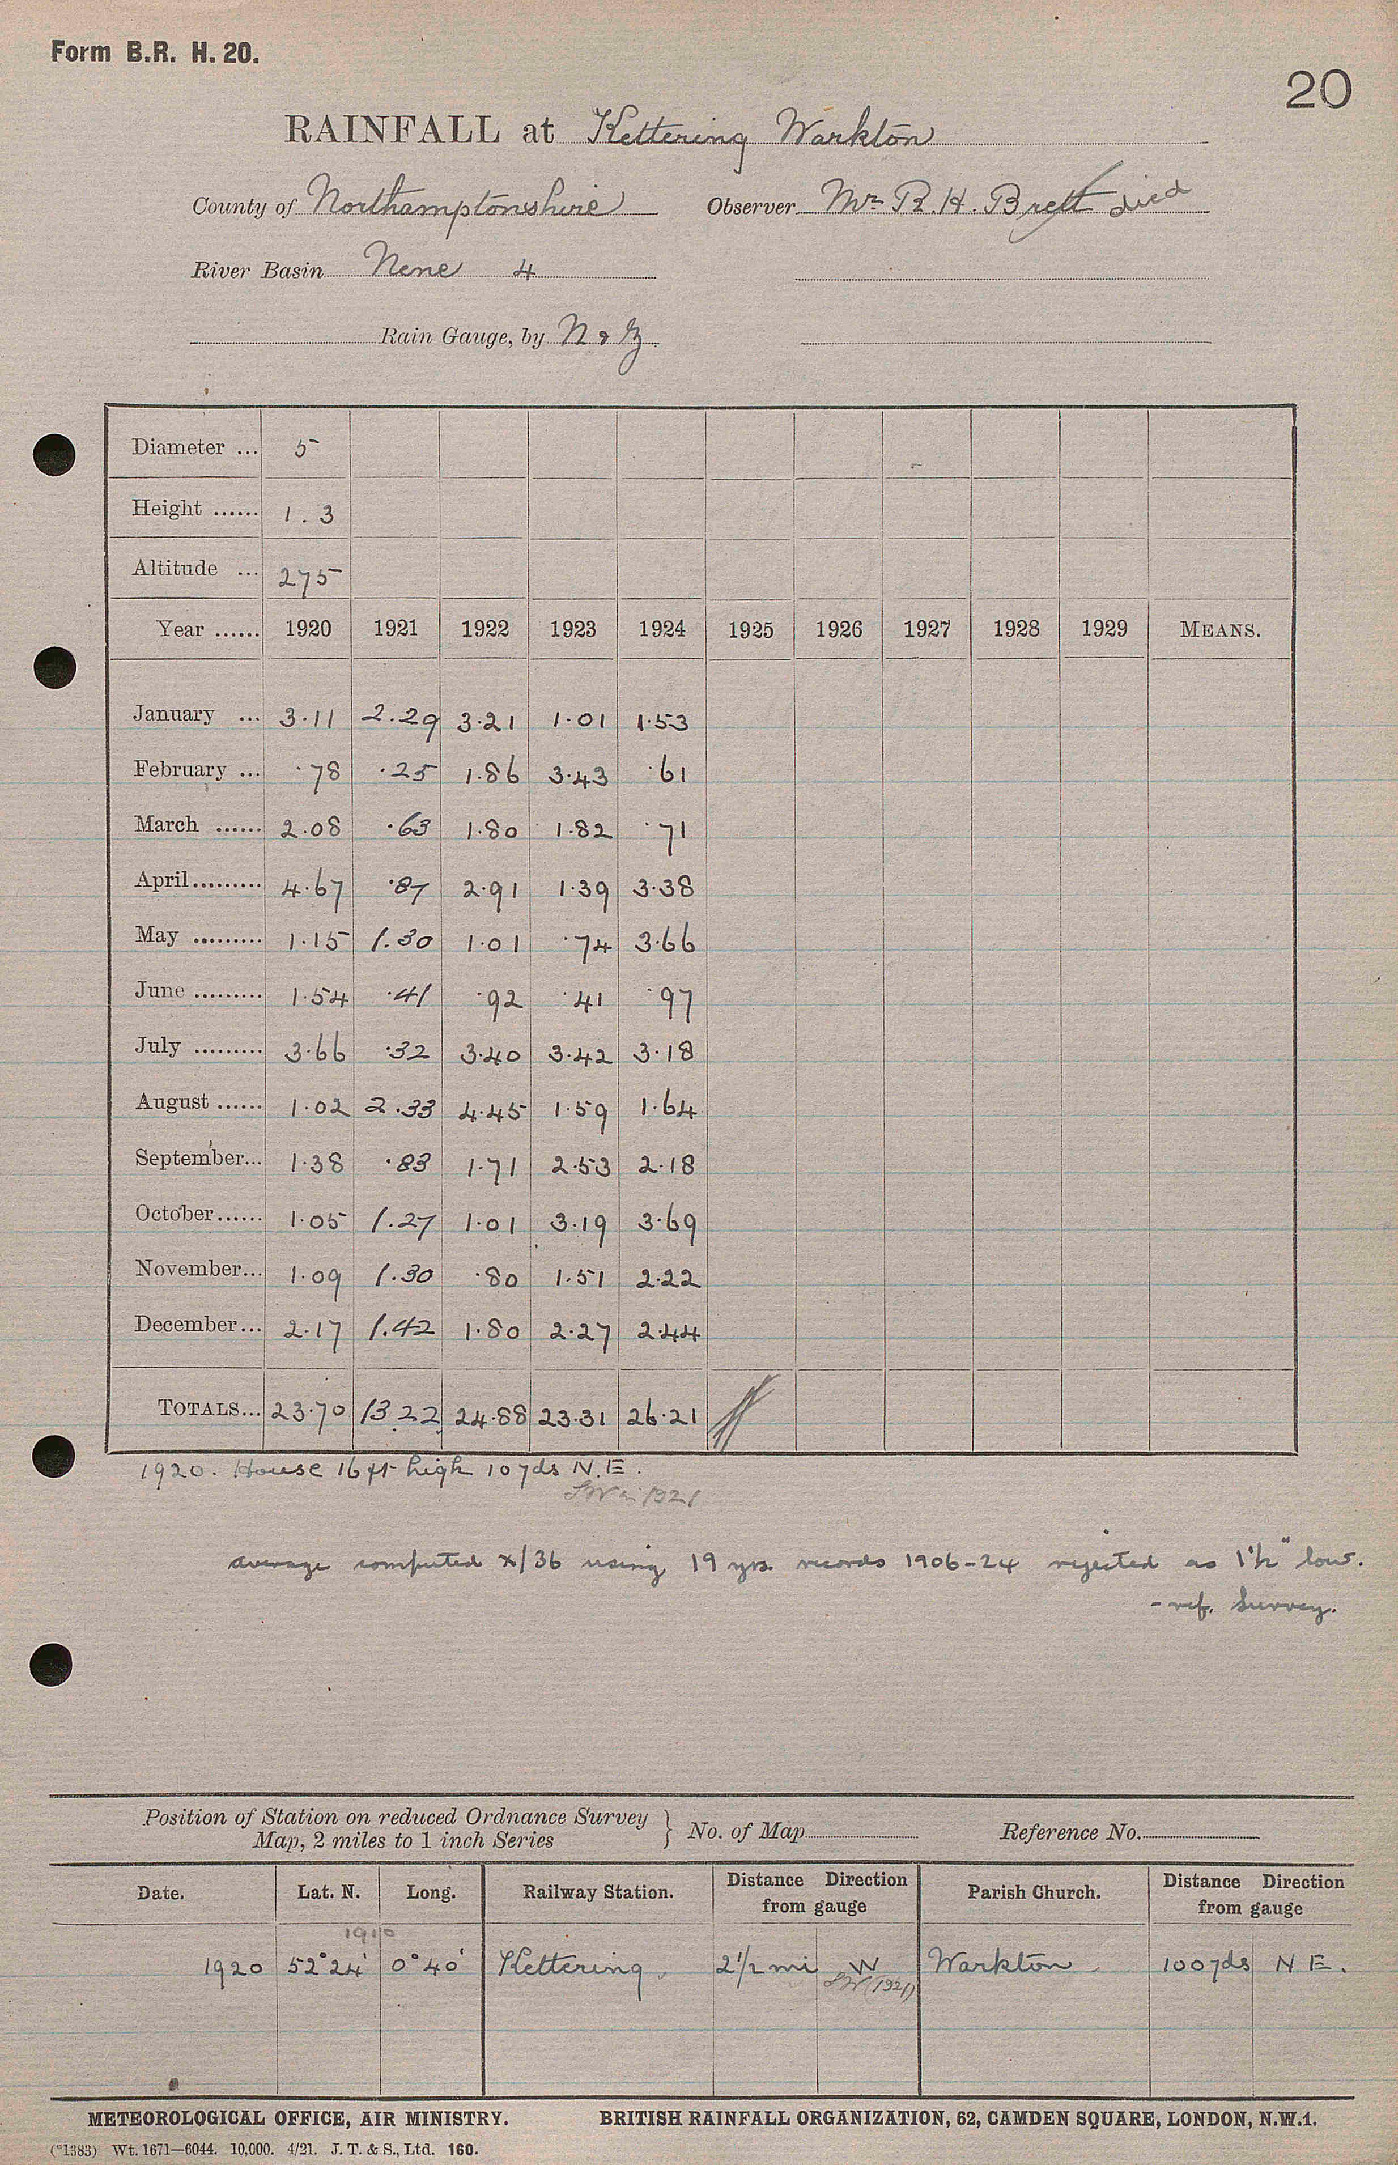 Form B.R. H. 20.
20
RAINFALL at Kettering Warkton
County of Northamptonshire Observer Mr R. H. Brett died
River Basin Nene 4
Rain Gauge, by N & Z.
Diameter ... 5
Height ...... 1.3
Altitude ... 275
Year ...... 1920 1921 1922 1923 1924 1925 1926 1927 1928 1929 MEANS.
January ... 3.11 2.29 3.21 1.01 1.53
February ... .78 .25 1.86 3.43 .61
March ...... 2.08 .63 1.80 1.82 .71
April......... 4.67 .87 2.91 1.39 3.38
May ......... 1.15 1.30 1.01 .74 3.66
June ......... 1.54 .41 .92 .41 .97
July ......... 3.66 .32 3.40 3.42 3.18
August ...... 1.02 2.33 4.45 1.59 1.64
September... 1.38 .83 1.71 2.53 2.18
October...... 1.05 1.27 1.01 3.19 3.69
November... 1.09 1.30 .80 1.51 2.22
December... 2.17 1.42 1.80 2.27 2.44
TOTALS... 23.70 13.22 24.88 23.31 26.21
1920. House 16 ft high 10 yds N.E.
SW in 1921
average computed x/36 using 19 yrs records 1906-24 rejected as 1½" low.
- ref. Survey.
Position of Station on reduced Ordnance Survey
Map, 2 miles to 1 inch Series } No. of Map Reference No.
Date. Lat. N. Long. Railway Station. Distance Direction from gauge Parish Church. Distance Direction from gauge
1910
1920 52°24' 0°40' Kettering 2½ mi W Warkton 100 yds N E.
SW (1921)
METEOROLOGICAL OFFICE, AIR MINISTRY. BRITISH RAINFALL ORGANIZATION, 62, CAMDEN SQUARE, LONDON, N.W.1.
(*1383) Wt. 1671—6044. 10,000. 4/21. J. T. & S., Ltd. 160.